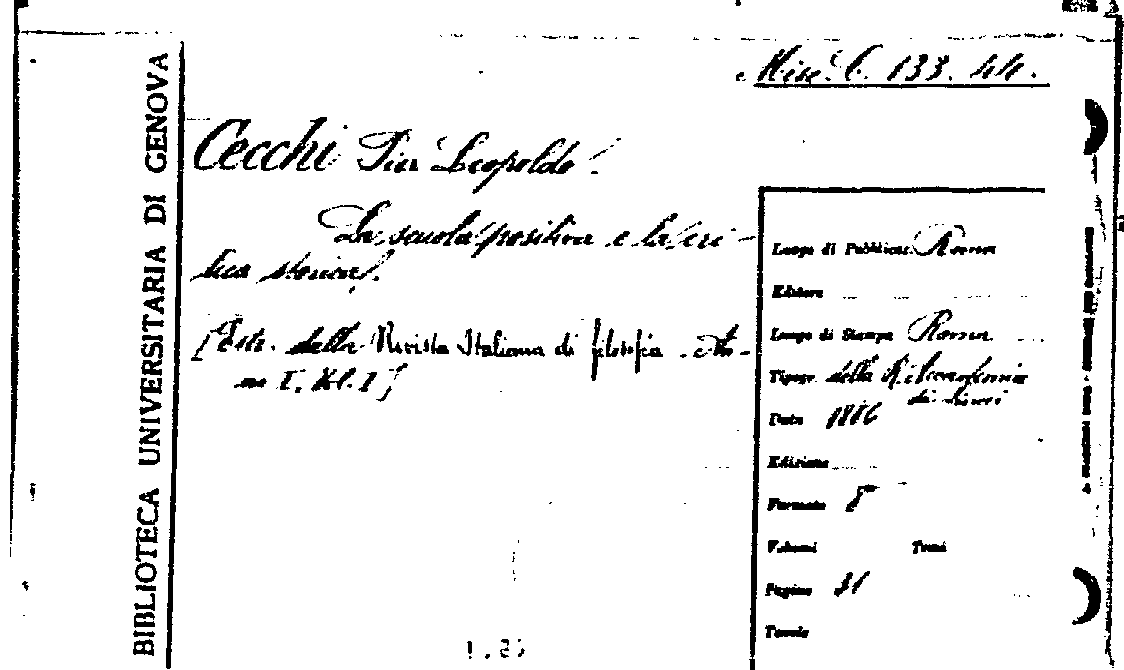 BIBLIOTECA UNIVERSITARIA DI GENOVA
Misc. C. 133. 44.
Cecchi Pier Leopoldo.
La scuola positiva e la cri-
tica storica.
[Estr. dalla Rivista Italiana di filosofia. An-
no I. Vol. I]
Luogo di Pubblicaz. Roma
Editore
Luogo di Stampa Roma
Tipogr. della R. Accademia
dei Lincei
Data 1886
Edizione
Formato 8°
Volumi Tomi
Pagine 31
Tavole